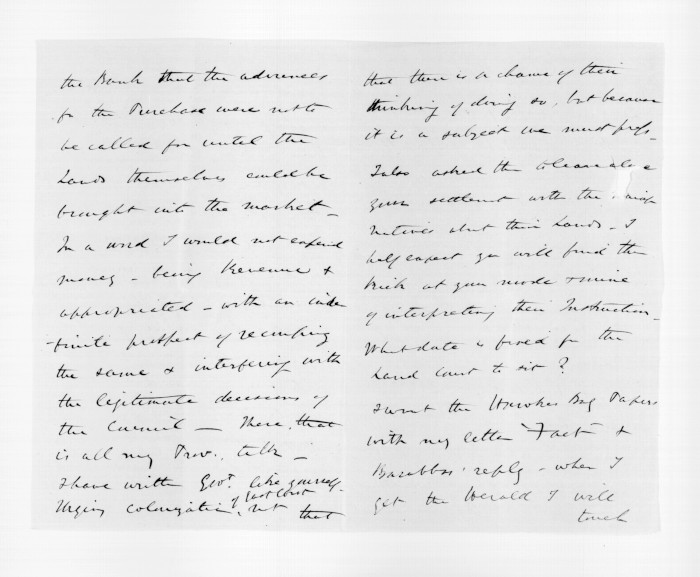 the Bank that the advances
for the Purchase were not to
be called for until the
Lands themselves could be
brought into the market _
In a word I would not expend
money - being Revenue &
appropriated - with an inde
-finite prospect of recouping
the same & interfering with
the legitimate decisions of
the Council — There, that
is all my Prov. talk -
I have written Govt. like yourself -
Urging colonization of East Coast, not that
that there is a chance of their
thinking of doing so, but because
it is a subject we must press -
I also asked them to leave alone
your settlement with the
Natives abt their Lands - I
half expect you will find them
kick at your mode & mine
of interpreting their Instruction -
What date is fixed for the
Land Court to sit ?
I sent the Hawkes Bay Papers
with my letter "Fact" &
Barabbas' reply - when I
get the Herald I will
touch